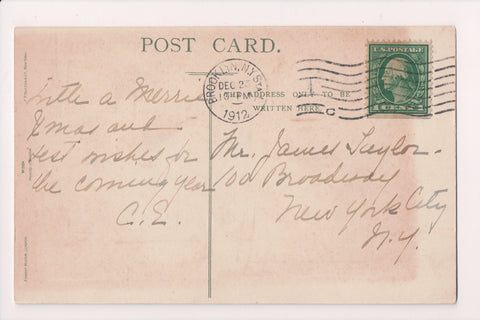 POST CARD.
BROOKLYN, N.Y. STA.
DEC 2
10 PM
1912
C
U.S. POSTAGE
1 CENT 1
THE ADDRESS ONLY TO BE
WRITTEN HERE.
With a Merrie
Xmas and
best wishes for
the coming year
C.E.
Mr. James Taylor
100 Broadway
New York City
N.Y.